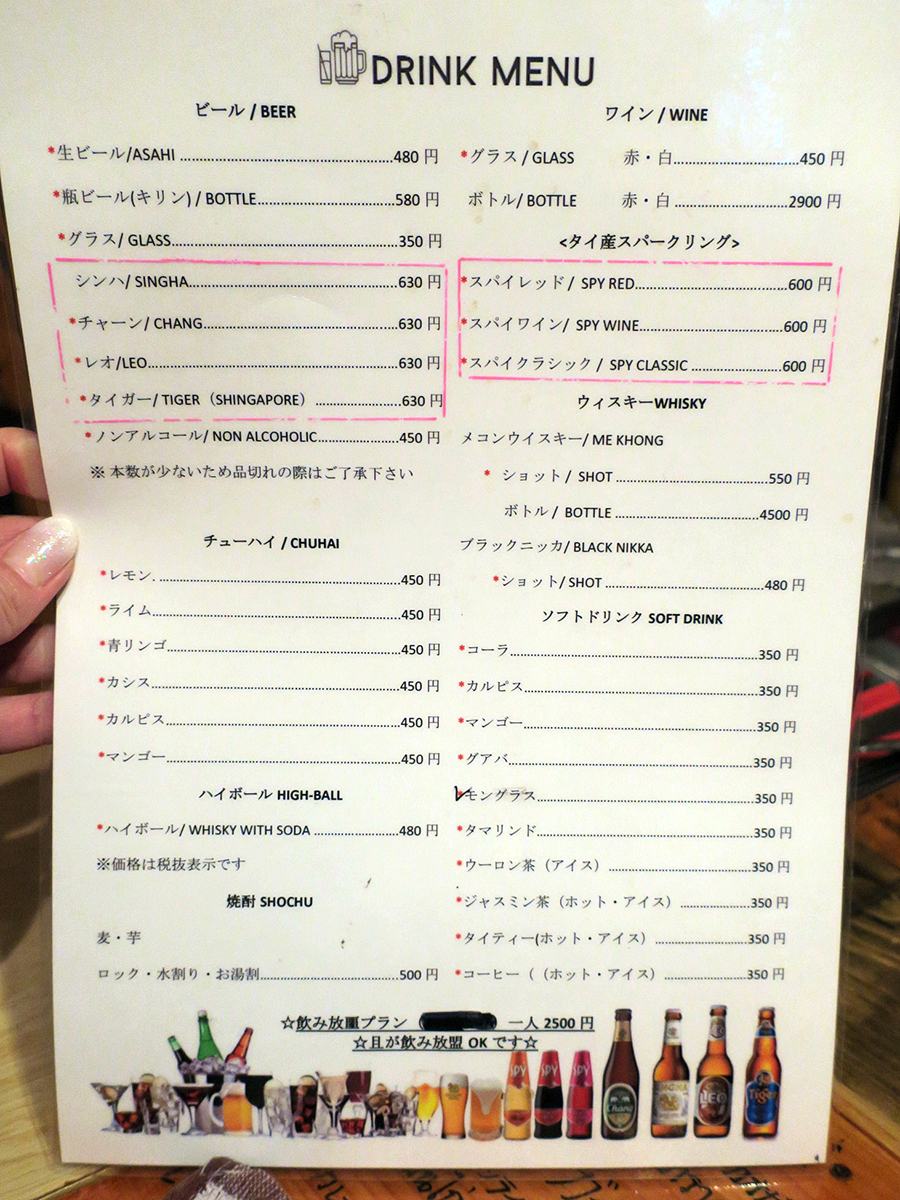 DRINK MENU
ビール / BEER
*生ビール/ASAHI ........480 円
*瓶ビール(キリン) / BOTTLE........580 円
*グラス/ GLASS........350 円
シンハ/ SINGHA........630 円
*チャーン/ CHANG........630 円
*レオ/LEO........630 円
*タイガー/ TIGER（SHINGAPORE） ........630 円
*ノンアルコール/ NON ALCOHOLIC........450 円
※ 本数が少ないため品切れの際はご了承下さい
チューハイ / CHUHAI
*レモン. ........450 円
*ライム........450 円
*青リンゴ........450 円
*カシス........450 円
*カルピス........450 円
*マンゴー........450 円
ハイボール HIGH-BALL
*ハイボール/ WHISKY WITH SODA ........480 円
※価格は税抜表示です
焼酎 SHOCHU
麦・芋
ロック・水割り・お湯割........500 円
ワイン / WINE
*グラス / GLASS 赤・白........450 円
ボトル/ BOTTLE 赤・白 ........2900 円
<タイ産スパークリング>
*スパイレッド / SPY RED........600 円
*スパイワイン / SPY WINE........600 円
*スパイクラシック / SPY CLASSIC ........600 円
ウィスキーWHISKY
メコンウイスキー/ ME KHONG
* ショット / SHOT ........550 円
ボトル / BOTTLE ........4500 円
ブラックニッカ/ BLACK NIKKA
*ショット/ SHOT ........480 円
ソフトドリンク SOFT DRINK
*コーラ........350 円
*カルピス........350 円
*マンゴー........350 円
*グアバ........350 円
レモングラス........350 円
*タマリンド........350 円
*ウーロン茶（アイス） ........350 円
*ジャスミン茶（ホット・アイス） ........350 円
*タイティー(ホット・アイス） ........350 円
*コーヒー（（ホット・アイス） ........350 円
☆飲み放題プラン 一人 2500 円
☆且が飲み放盟 OK です☆
SPY
SPY
SPY
Chang
SINGHA
LEO
Tiger